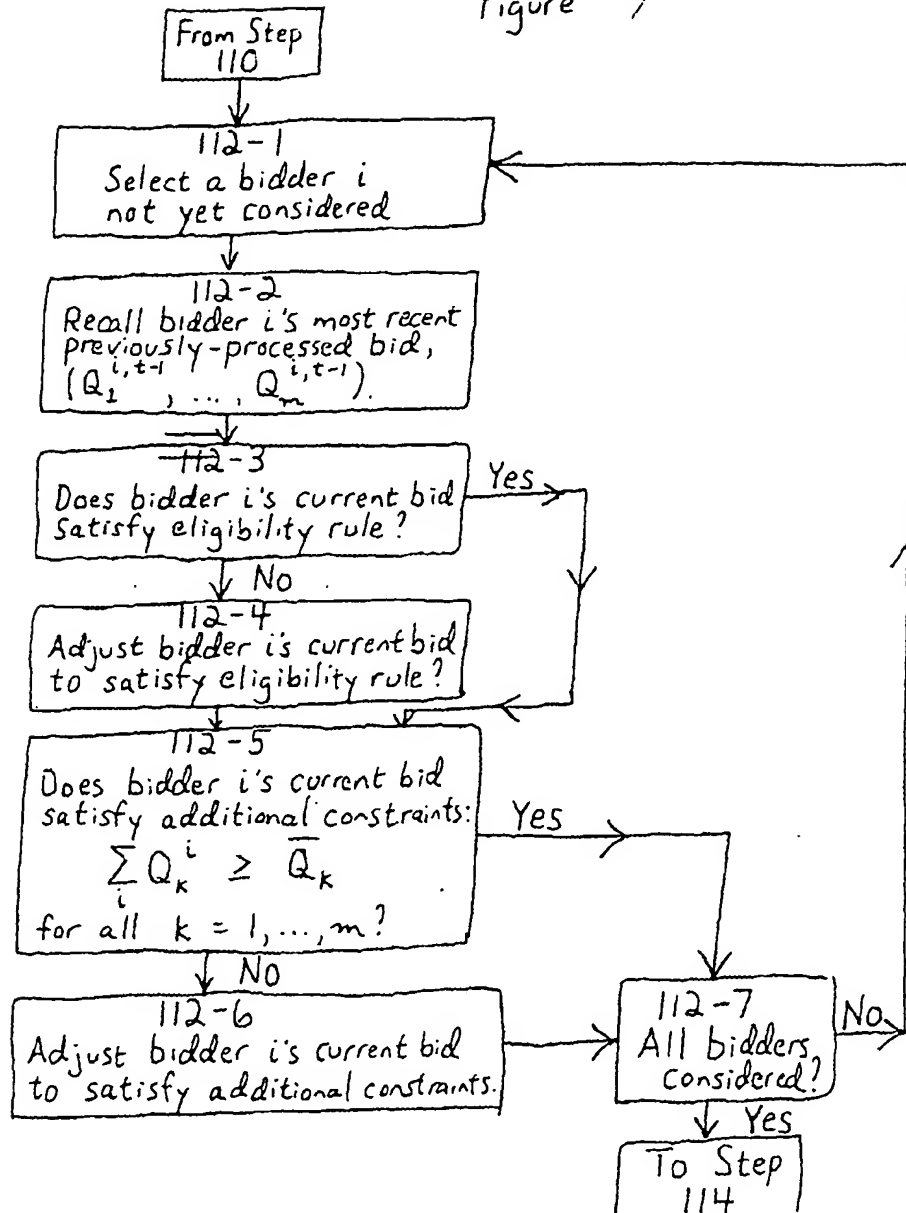 Figure 7
From Step
110
112-1
Select a bidder i
not yet considered
112-2
Recall bidder i's most recent
previously-processed bid,
(Q₁^{i,t-1}, ..., Qₘ^{i,t-1}).
112-3
Does bidder i's current bid
satisfy eligibility rule?
Yes
No
112-4
Adjust bidder i's current bid
to satisfy eligibility rule?
112-5
Does bidder i's current bid
satisfy additional constraints:
∑ᵢ Qₖⁱ ≥ Q̄ₖ
for all k = 1, ..., m?
Yes
NO
112-6
Adjust bidder i's current bid
to satisfy additional constraints.
112-7
All bidders
considered?
No
Yes
To Step
114